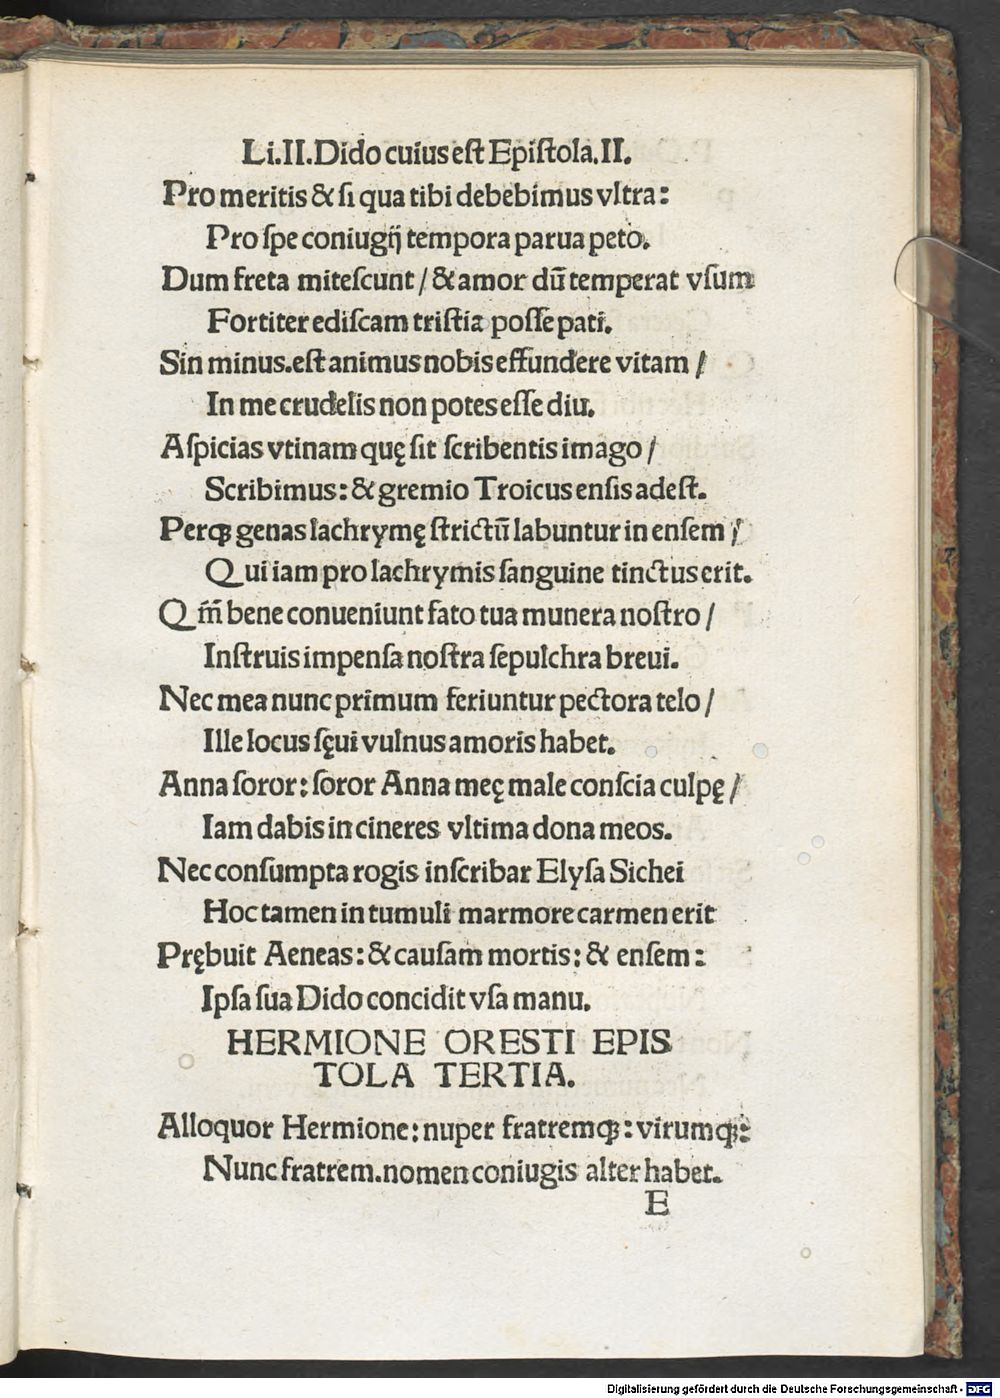 Li.II.Dido cuius est Epistola.II.
Pro meritis & si qua tibi debebimus vltra:
Pro spe coniugij tempora parua peto.
Dum freta mitescunt / & amor dū temperat vsum
Fortiter ediscam tristia posse pati.
Sin minus.est animus nobis effundere vitam /
In me crudelis non potes esse diu.
Aspicias vtinam quę sit scribentis imago /
Scribimus: & gremio Troicus ensis adest.
Perqꝫ genas lachrymę strictū labuntur in ensem /
Qui iam pro lachrymis sanguine tinctus erit.
Qm̄ bene conueniunt fato tua munera nostro /
Instruis impensa nostra sepulchra breui.
Nec mea nunc primum feriuntur pectora telo /
Ille locus sęui vulnus amoris habet.
Anna soror: soror Anna meę male conscia culpę /
Iam dabis in cineres vltima dona meos.
Nec consumpta rogis inscribar Elysa Sichei
Hoc tamen in tumuli marmore carmen erit
Prębuit Aeneas: & causam mortis: & ensem:
Ipsa sua Dido concidit vsa manu.
HERMIONE ORESTI EPIS
TOLA TERTIA.
Alloquor Hermione: nuper fratremqꝫ: virumqꝫ:
Nunc fratrem.nomen coniugis alter habet.
E
Digitalisierung gefördert durch die Deutsche Forschungsgemeinschaft - DFG